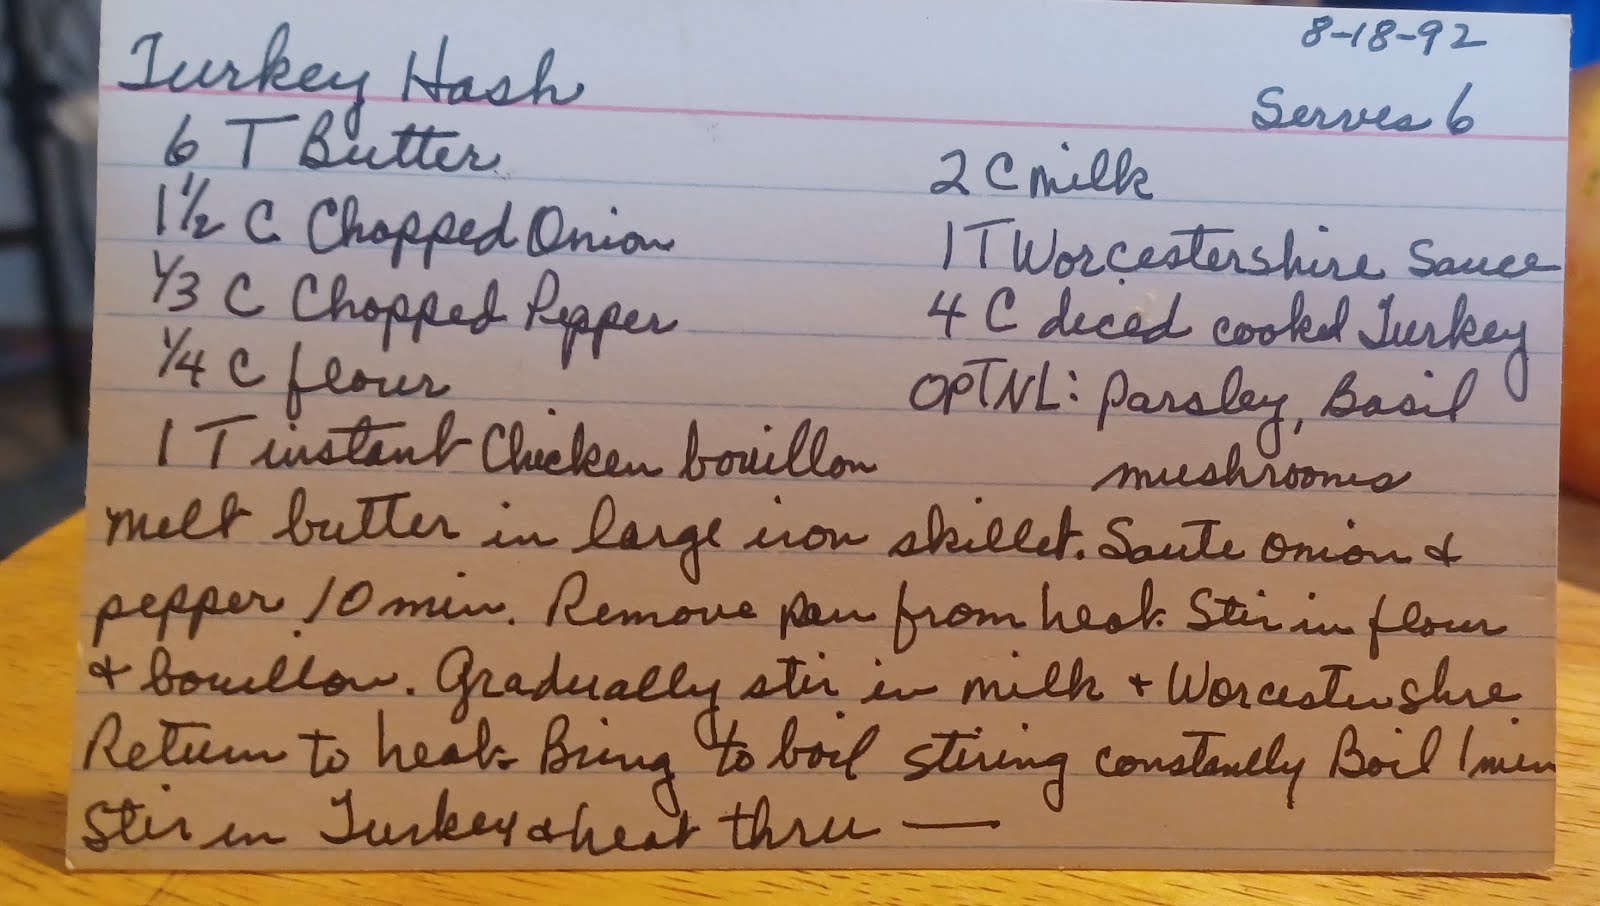 8-18-92
Turkey Hash
Serves 6
6 T Butter
1 1/2 C Chopped Onion
1/3 C Chopped Pepper
1/4 C flour
1 T instant Chicken bouillon
2 C milk
1 T Worcestershire Sauce
4 C diced cooked Turkey
OPTNL: parsley, Basil
mushrooms
melt butter in large iron skillet. Saute onion &
pepper 10 min. Remove pan from heat. Stir in flour
& bouillon. Gradually stir in milk + Worcestershire
Return to heat. Bring to boil stiring constantly Boil 1 min
Stir in Turkey & heat thru —